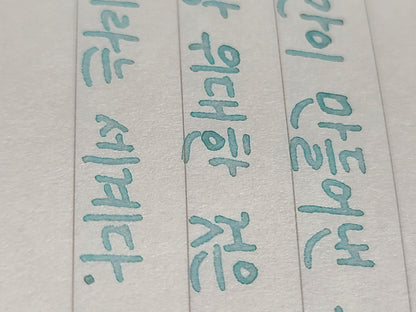 간이 만들어낸
위대한 것은
라는 세계다.